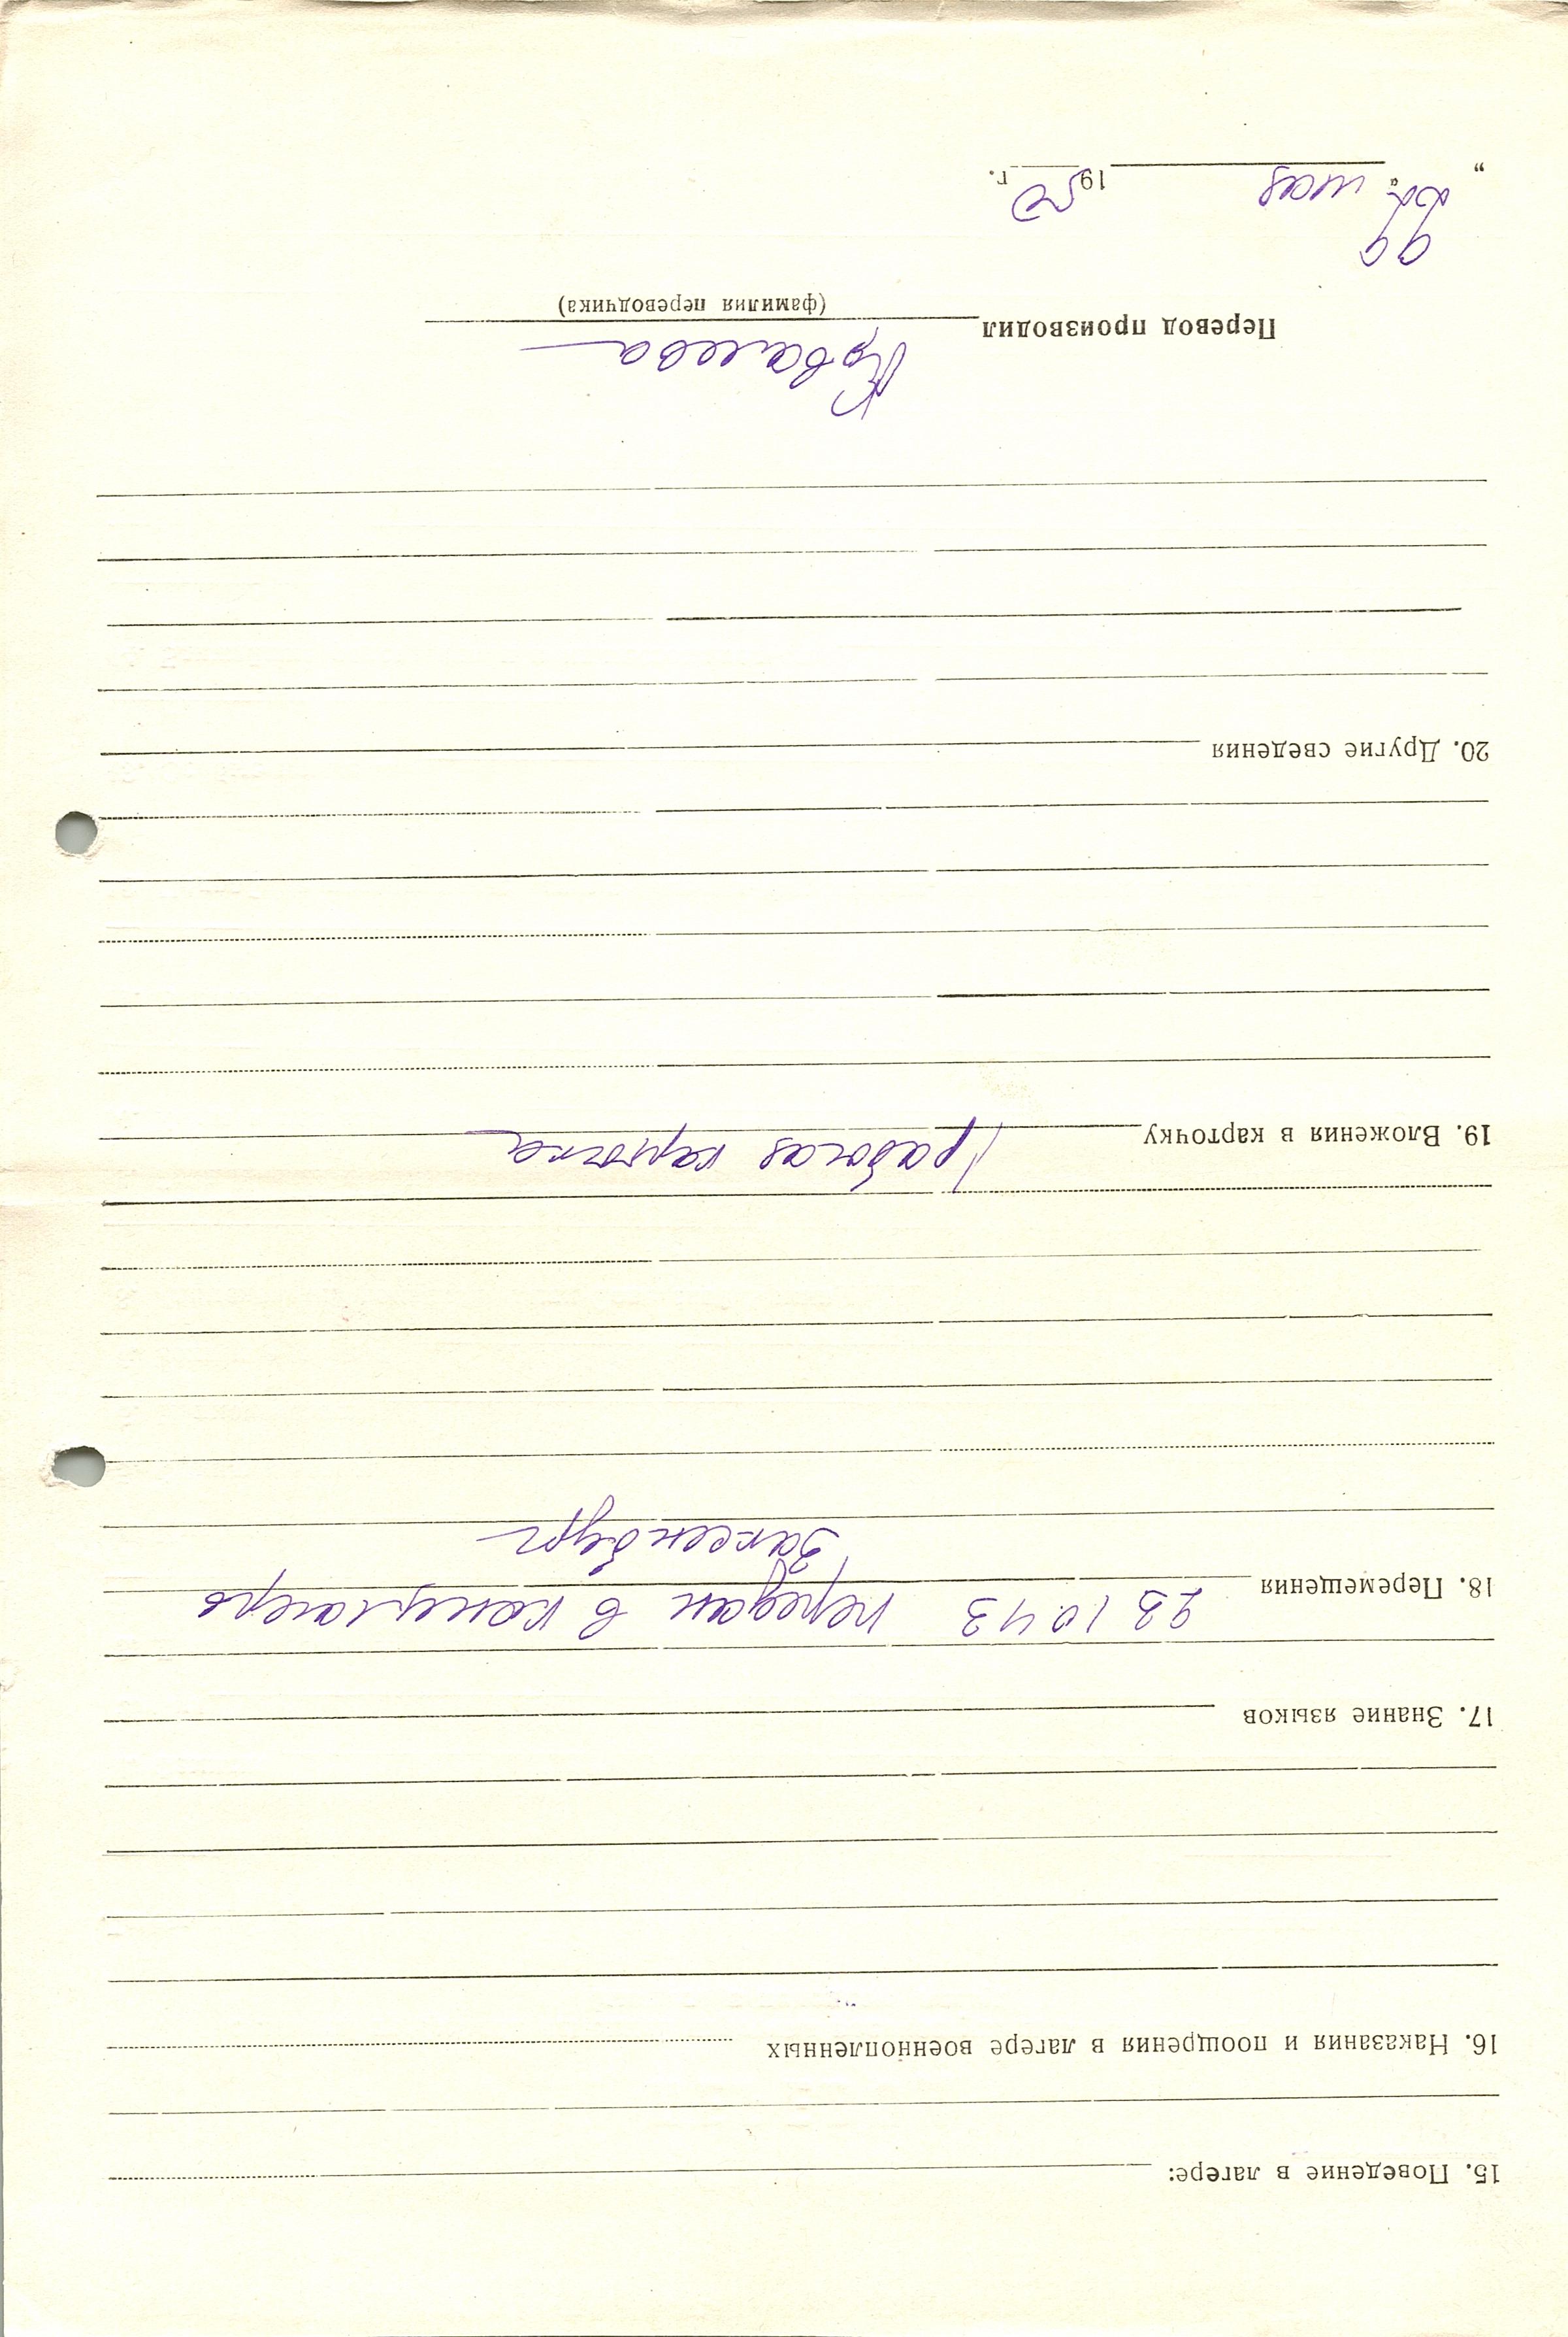 15. Поведение в лагере:
16. Наказания и поощрения в лагере военнопленных
17. Знание языков
18. Перемещения 23 10.43 передан в концлагерь
Заксенбург
19. Вложения в карточку 1 рабочая карточка
20. Другие сведения
Перевод производил Ковалева
(фамилия переводчика)
" 22 " мая 1950 г.